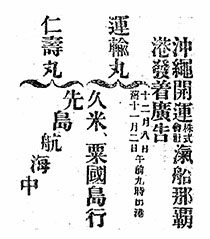 沖繩開運株式会社滊船那覇
港發着廣告
運輸丸
十二月八日午前九時出港
舊十一月二日
久米、粟國島行
仁壽丸
先島航海中